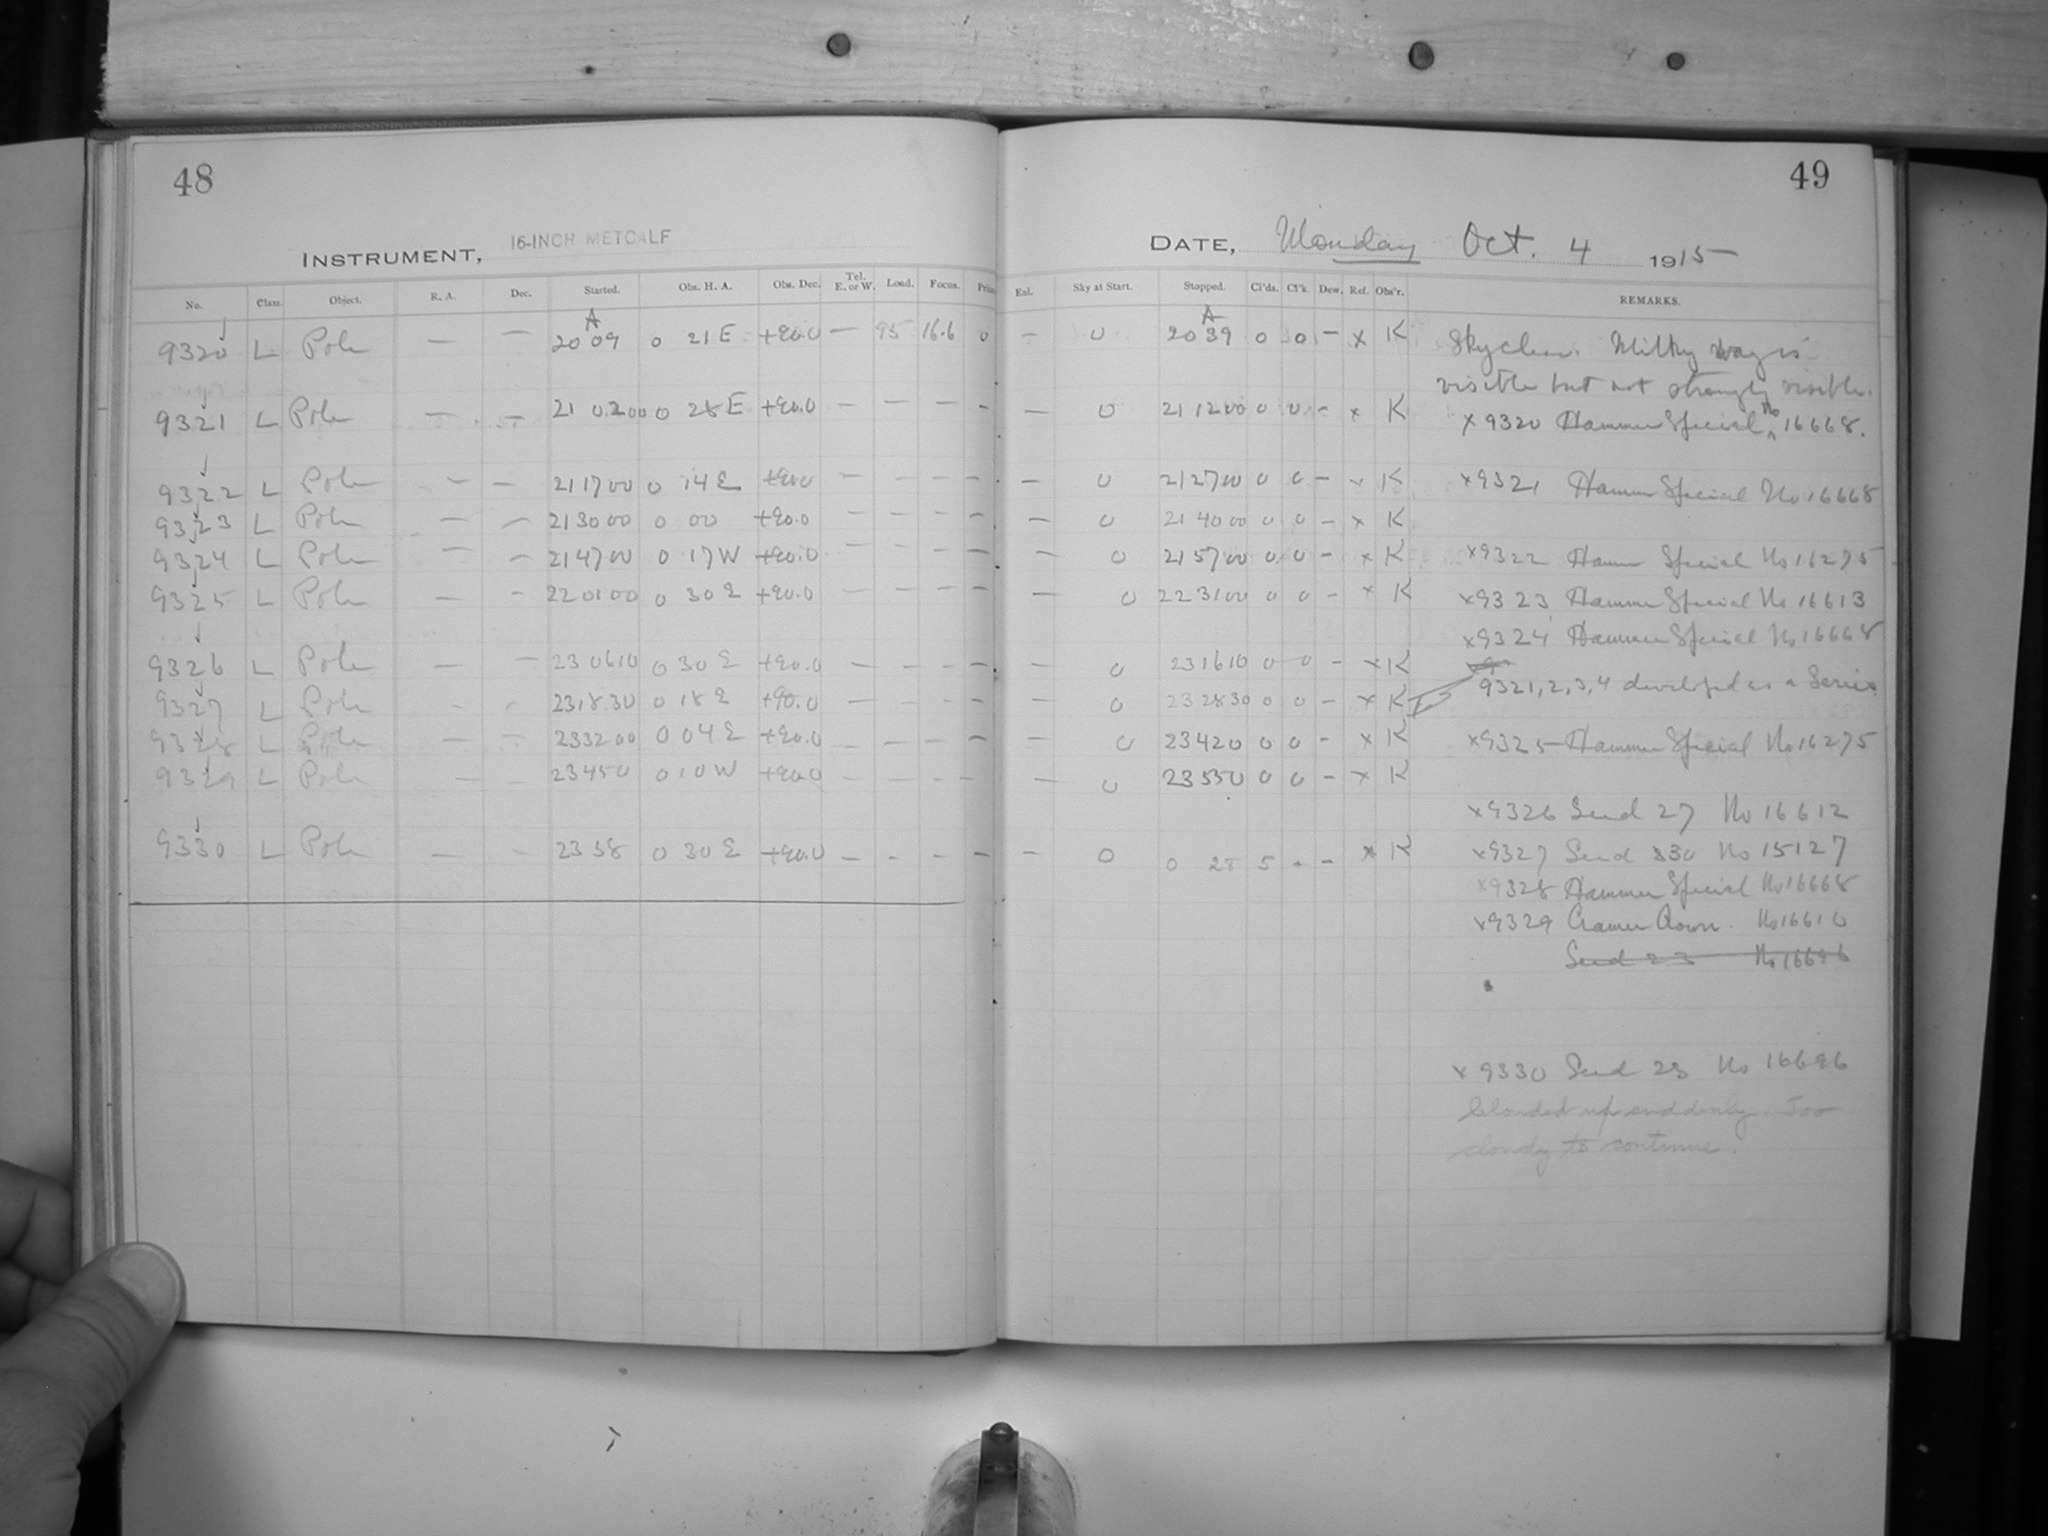 48
INSTRUMENT, 16-INCH METCALF
No. Class. Object. R. A. Dec. Started. Obs. H. A. Obs. Dec. Tel. E. or W. Load. Focus. Prism
9320 L Pole — — A 20 09 0 21 E +90.0 — 95 16.6 0
9321 L Pole — — 21 02 00 0 28 E +90.0 — — — —
9322 L Pole — — 21 17 00 0 14 E +90.0 — — — —
9323 L Pole — — 21 30 00 0 00 +90.0 — — — —
9324 L Pole — — 21 47 00 0 17 W +90.0 — — — —
9325 L Pole — — 22 01 00 0 30 E +90.0 — — — —
9326 L Pole — — 23 06 10 0 30 E +90.0 — — — —
9327 L Pole — — 23 18 30 0 18 E +90.0 — — — —
9328 L Pole — — 23 32 00 0 04 E +90.0 — — — —
9329 L Pole — — 23 45 0 0 10 W +90.0 — — — —
9330 L Pole — — 23 58 0 30 E +90.0 — — — —
49
DATE, Monday Oct. 4 1915
Ext. Sky at Start. Stopped. Cl'ds. Cl'k. Dew. Ref. Obs'r. REMARKS.
— 0 A 20 39 0 0 — x K
— 0 21 12 00 0 0 — x K
— 0 21 27 00 0 0 — x K
— 0 21 40 00 0 0 — x K
— 0 21 57 00 0 0 — x K
— 0 22 31 00 0 0 — x K
— 0 23 16 10 0 0 — x K
— 0 23 28 30 0 0 — x K
0 23 42 0 0 0 — x K
— 0 23 55 0 0 0 — x K
— 0 0 28 5 — x K
Sky clear. Milky way is
visible but not strongly visible.
x 9320 Hammer Special No 16668.
x 9321 Hammer Special No 16668
x 9322 Hammer Special No 16275
x 9323 Hammer Special No 16613
x 9324 Hammer Special No 16668
9321, 2, 3, 4 developed as a Series
x 9325 Hammer Special No 16275
x 9326 Seed 27 No 16612
x 9327 Seed 30 No 15127
x 9328 Hammer Special No 16668
x 9329 Cramer Crown No 16610
Seed 23 No 16696
x 9330 Seed 23 No 16696
Clouded up suddenly. Too
cloudy to continue.